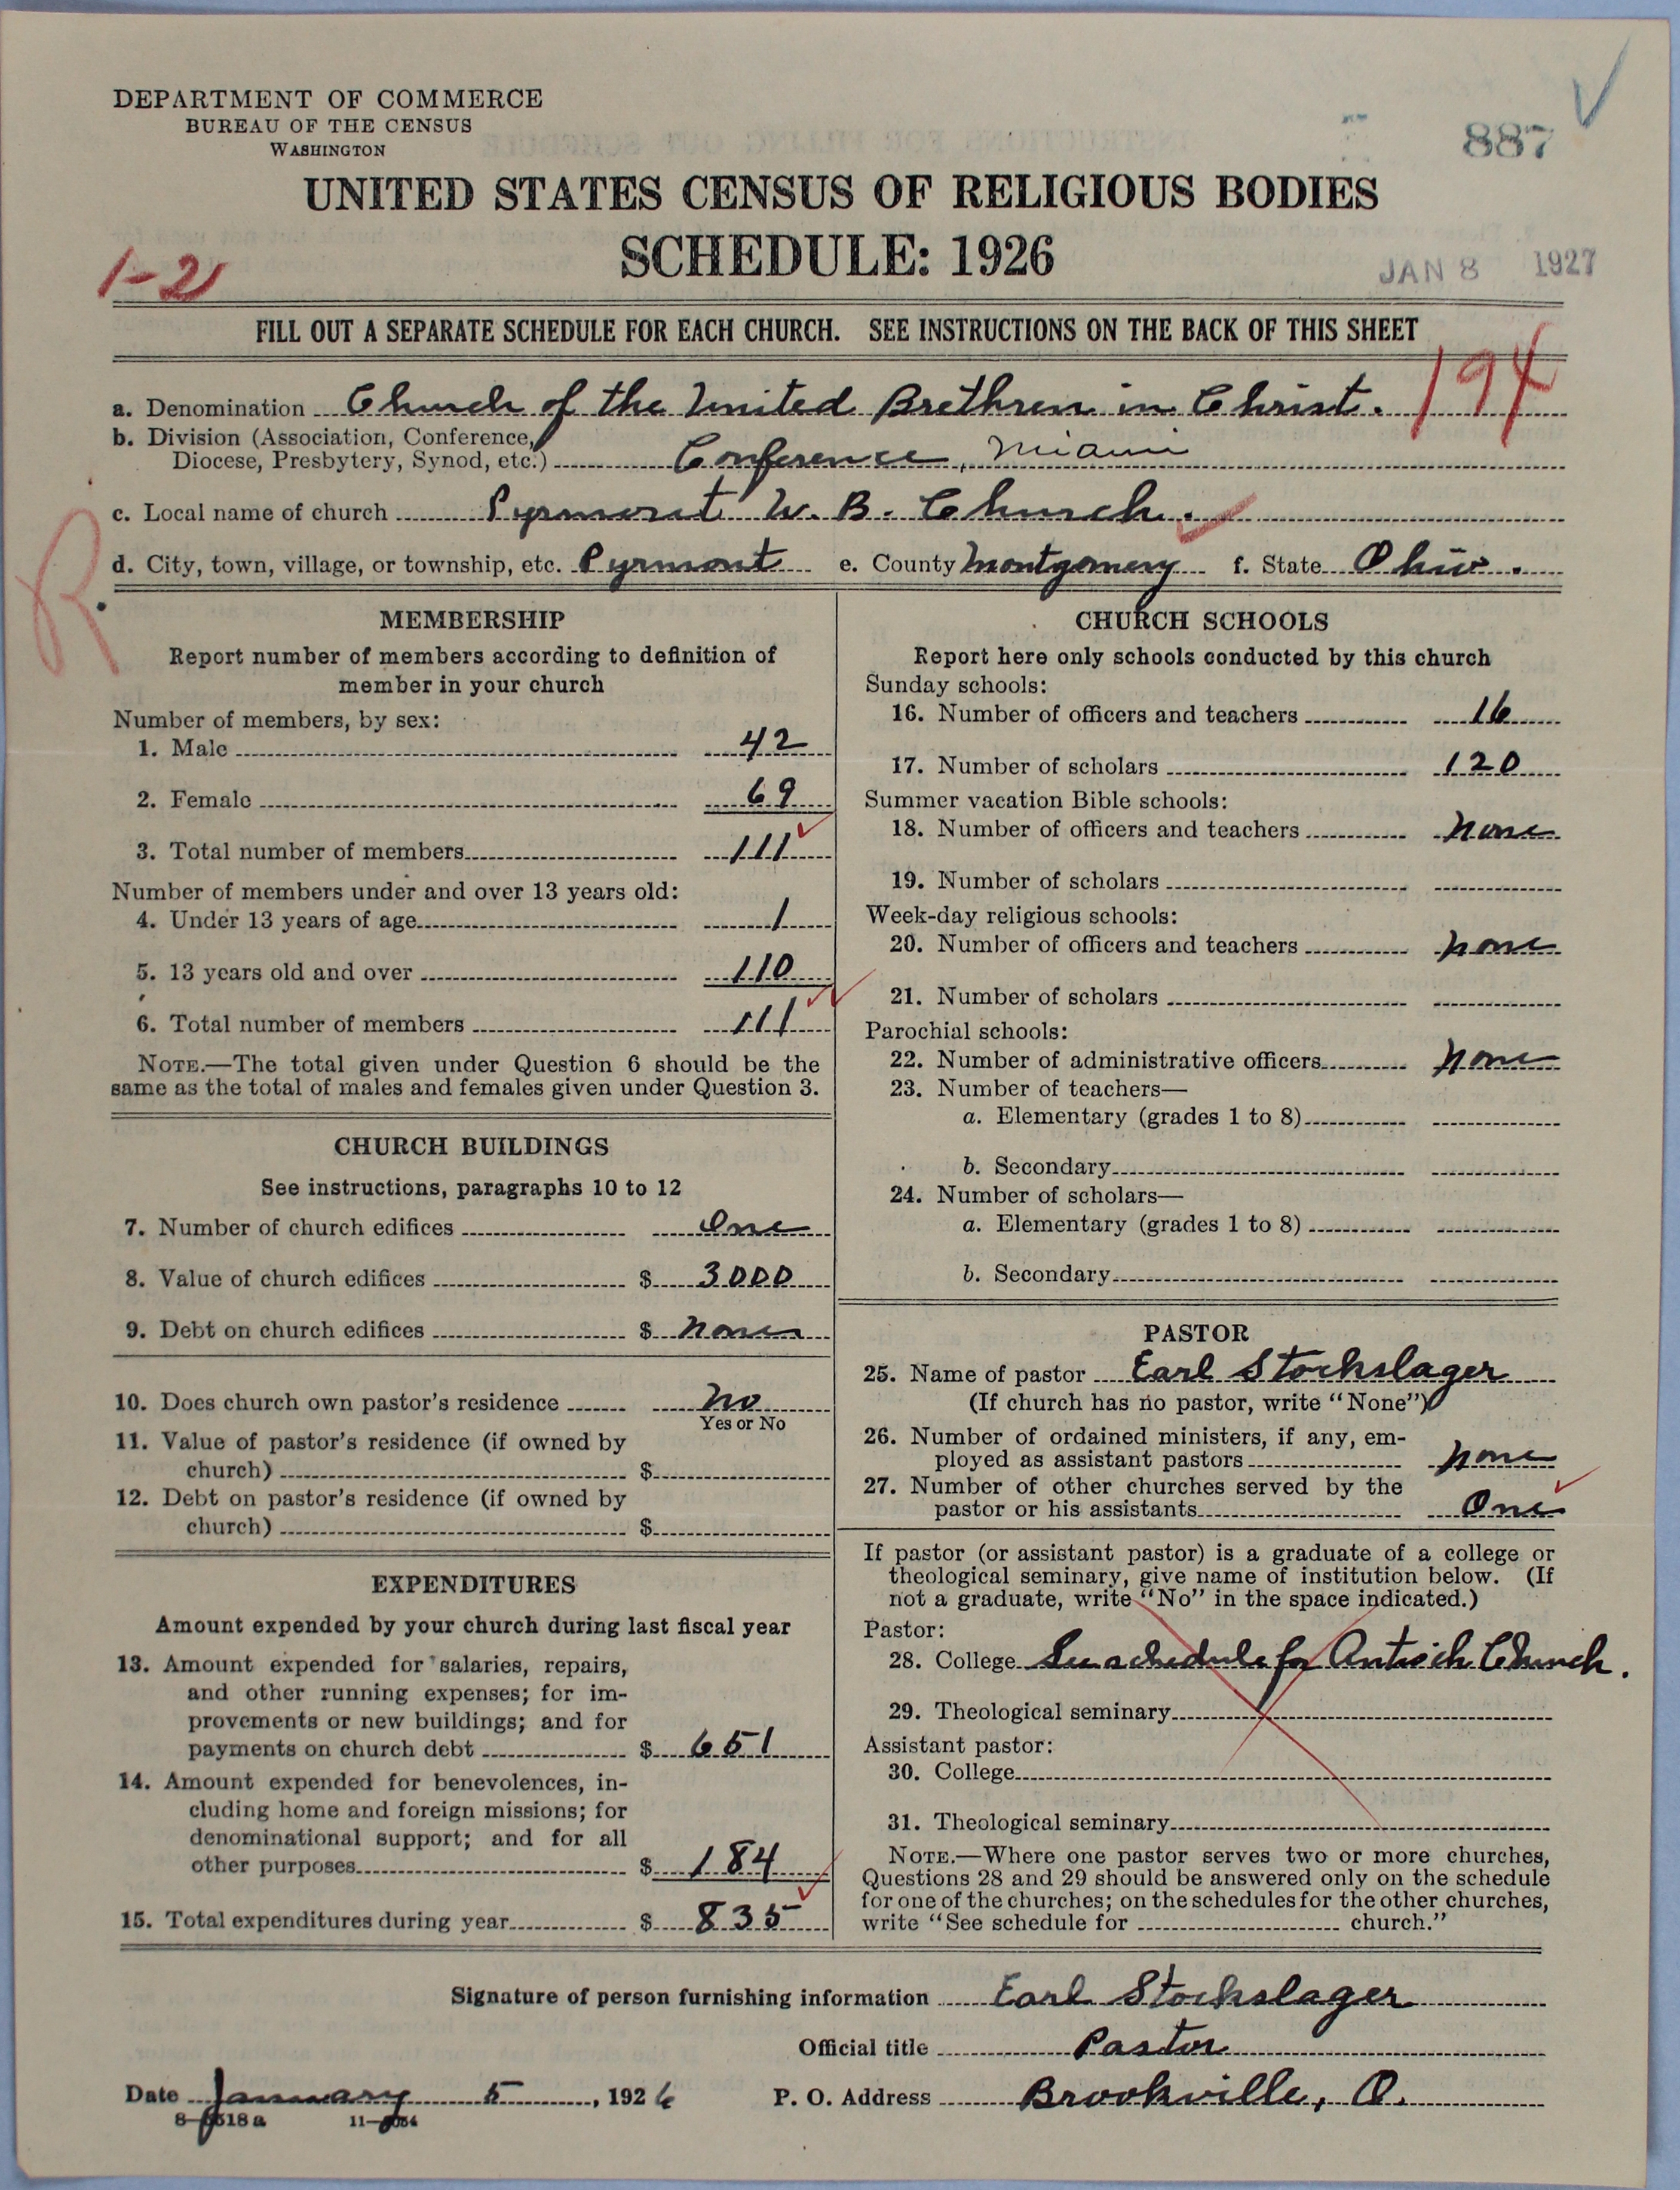 DEPARTMENT OF COMMERCE
BUREAU OF THE CENSUS
WASHINGTON
887
UNITED STATES CENSUS OF RELIGIOUS BODIES
SCHEDULE: 1926
1-2
JAN 8 1927
FILL OUT A SEPARATE SCHEDULE FOR EACH CHURCH. SEE INSTRUCTIONS ON THE BACK OF THIS SHEET
194
a. Denomination Church of the United Brethren in Christ.
b. Division (Association, Conference,
Diocese, Presbytery, Synod, etc.) Conference, Miami
c. Local name of church Pyrmont U. B. Church.
d. City, town, village, or township, etc. Pyrmont e. County Montgomery f. State Ohio.
R
MEMBERSHIP
Report number of members according to definition of
member in your church
Number of members, by sex:
1. Male 42
2. Female 69
3. Total number of members 111
Number of members under and over 13 years old:
4. Under 13 years of age 1
5. 13 years old and over 110
6. Total number of members 111
NOTE.—The total given under Question 6 should be the
same as the total of males and females given under Question 3.
CHURCH BUILDINGS
See instructions, paragraphs 10 to 12
7. Number of church edifices One
8. Value of church edifices $ 3000
9. Debt on church edifices $ none
10. Does church own pastor's residence No
Yes or No
11. Value of pastor's residence (if owned by
church) $
12. Debt on pastor's residence (if owned by
church) $
EXPENDITURES
Amount expended by your church during last fiscal year
13. Amount expended for salaries, repairs,
and other running expenses; for im-
provements or new buildings; and for
payments on church debt $ 651
14. Amount expended for benevolences, in-
cluding home and foreign missions; for
denominational support; and for all
other purposes $ 184
15. Total expenditures during year $ 835
CHURCH SCHOOLS
Report here only schools conducted by this church
Sunday schools:
16. Number of officers and teachers 16
17. Number of scholars 120
Summer vacation Bible schools:
18. Number of officers and teachers none
19. Number of scholars
Week-day religious schools:
20. Number of officers and teachers none
21. Number of scholars
Parochial schools:
22. Number of administrative officers none
23. Number of teachers—
a. Elementary (grades 1 to 8)
b. Secondary
24. Number of scholars—
a. Elementary (grades 1 to 8)
b. Secondary
PASTOR
25. Name of pastor Earl Stockslager
(If church has no pastor, write "None")
26. Number of ordained ministers, if any, em-
ployed as assistant pastors none
27. Number of other churches served by the
pastor or his assistants One
If pastor (or assistant pastor) is a graduate of a college or
theological seminary, give name of institution below. (If
not a graduate, write "No" in the space indicated.)
Pastor:
28. College See schedule for Antioch Church.
29. Theological seminary
Assistant pastor:
30. College
31. Theological seminary
NOTE.—Where one pastor serves two or more churches,
Questions 28 and 29 should be answered only on the schedule
for one of the churches; on the schedules for the other churches,
write "See schedule for church."
Signature of person furnishing information Earl Stockslager
Official title Pastor
Date January 5, 1926 P. O. Address Brookville, O.